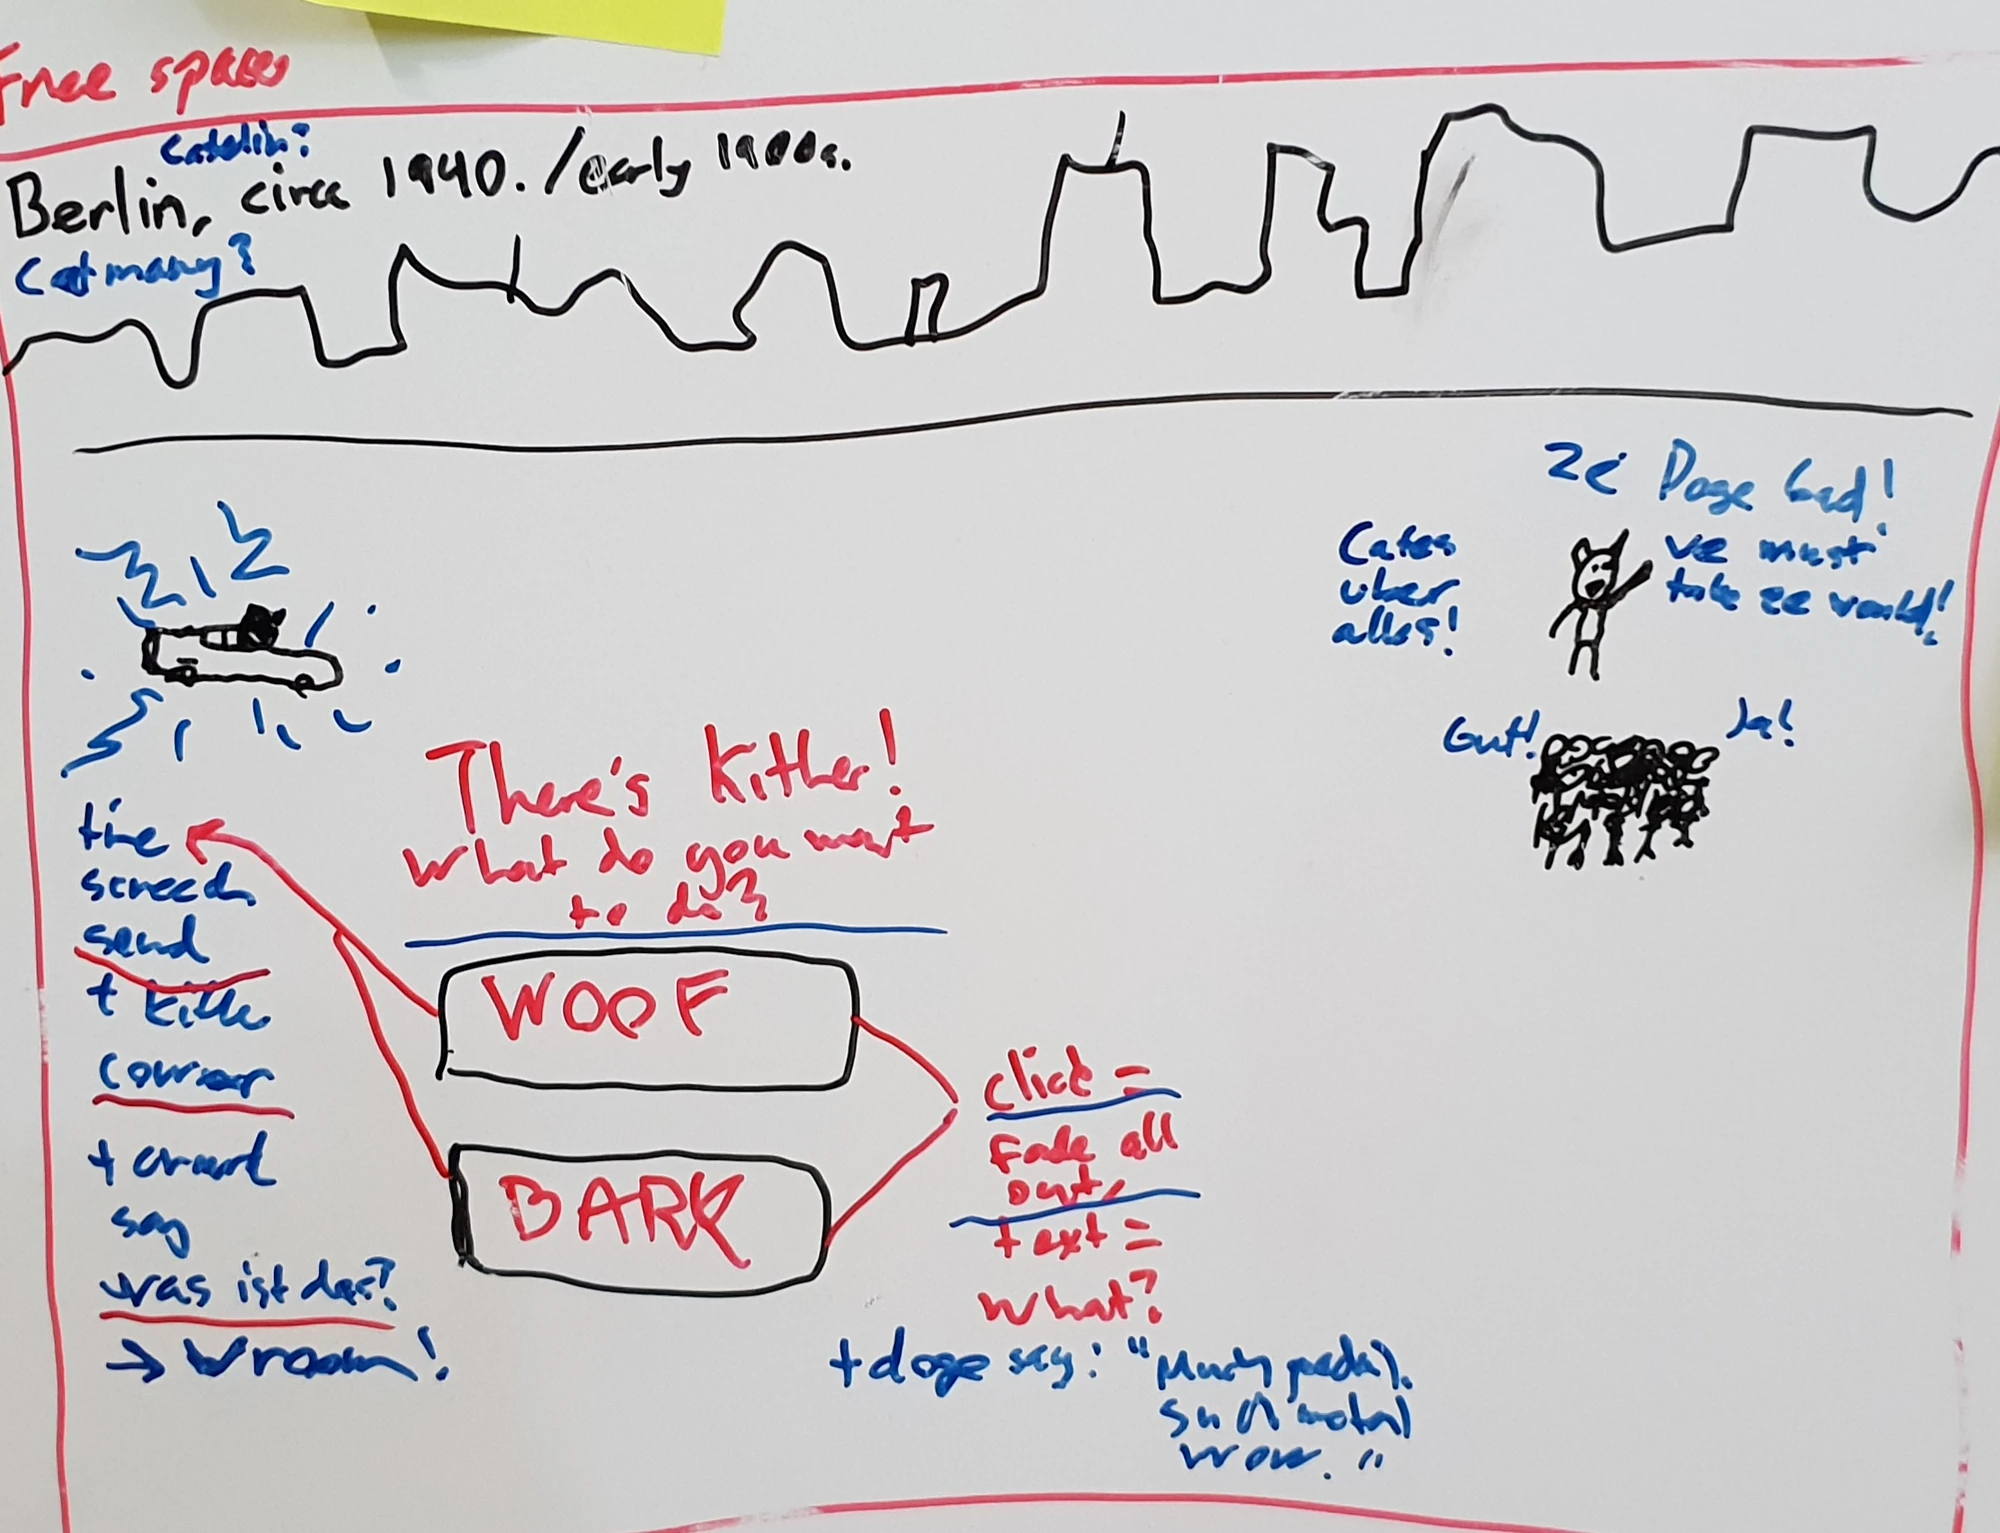 Free space
Catelin?
Berlin, circa 1940. / early 1900s.
Catmany?
Ze Doge bad!
ve must
take ze world!
Cates
uber
alles!
Gut!
Ja!
There's Kitler!
What do you want
to do?
WOOF
BARK
tire
screech
send
+ Kitler
+ crowd
say
was ist das?
→ Vroom!
click =
Fade all
out,
text =
What?
+ doge say: "Much pedal.
Such motor
wow."